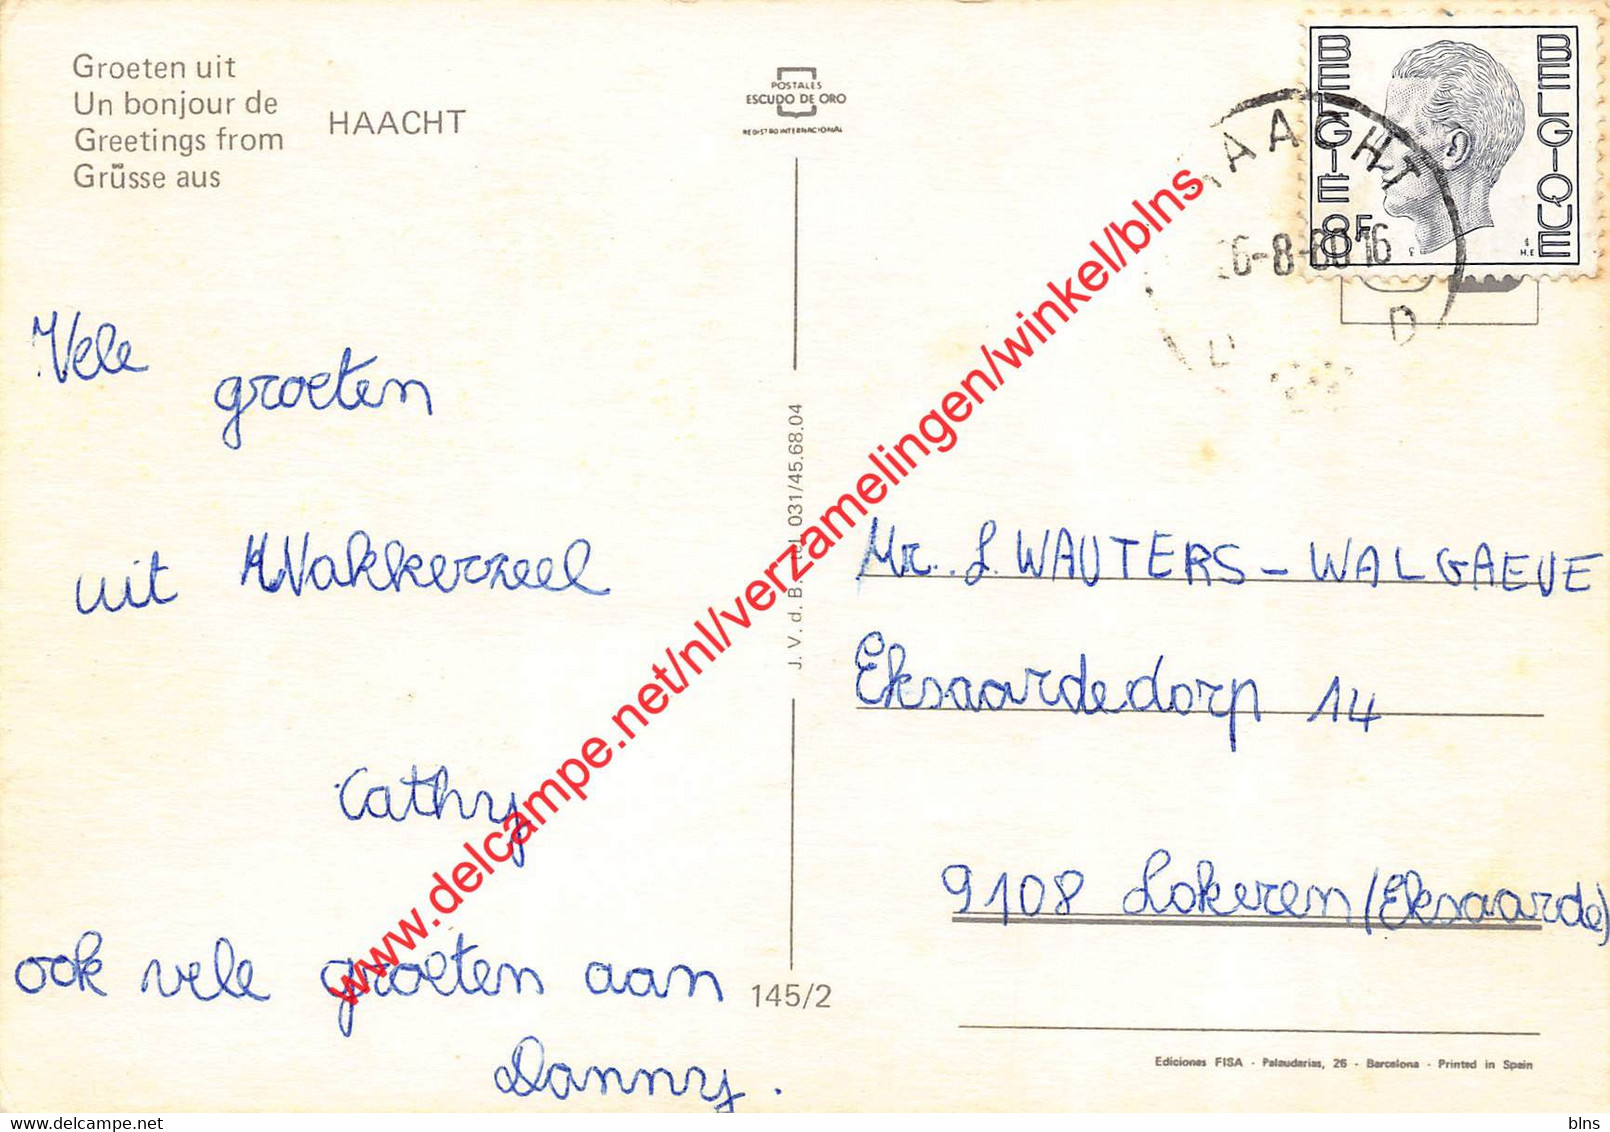 Groeten uit
Un bonjour de
Greetings from
Grüsse aus
HAACHT
POSTALES
ESCUDO DE ORO
REGISTRO INTERNACIONAL
BELGIE
BELGIQUE
8F
HAACHT
6-8-80 16
D
Vele
groeten
uit Wakkerzeel
Cathy
ook vele groeten aan
Danny.
J. V. d. B. tel. 031/45.68.04
145/2
Mr. J. WAUTERS - WALGAEVE
Eksaardedorp 14
9108 Lokeren (Eksaarde)
Ediciones FISA - Palaudarias, 26 - Barcelona - Printed in Spain
www.delcampe.net/nl/verzamelingen/winkel/blns
www.delcampe.net
blns